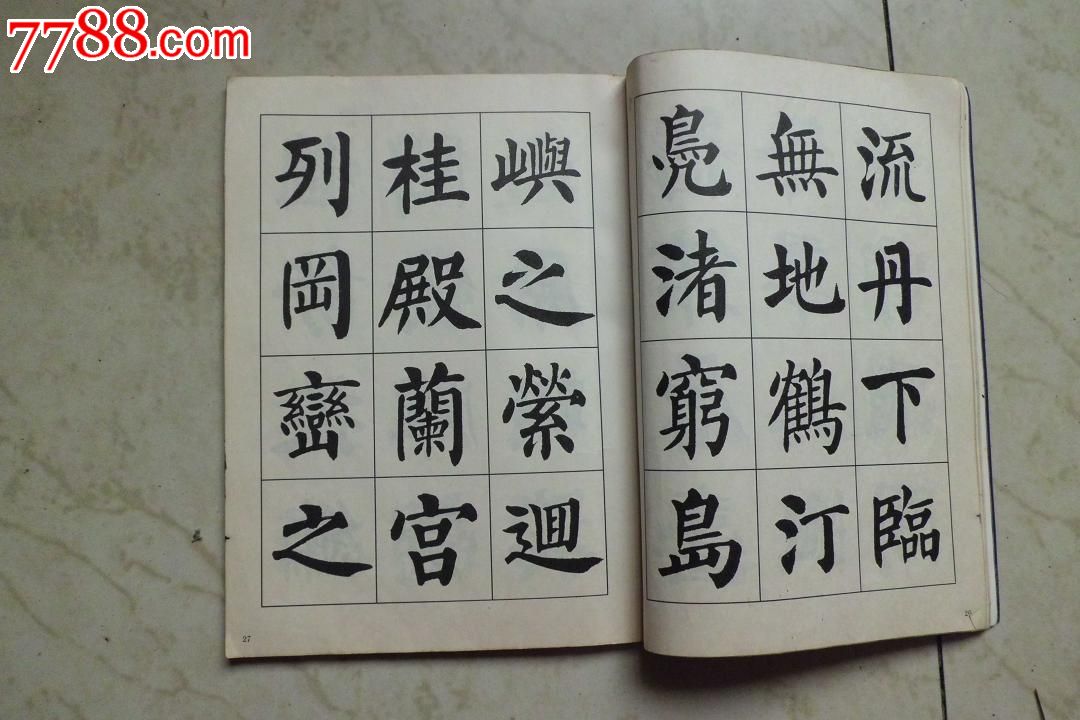 7788.com
流丹下臨
無地鶴汀
鳧渚窮島
嶼之縈迴
桂殿蘭宮
列岡巒之
27